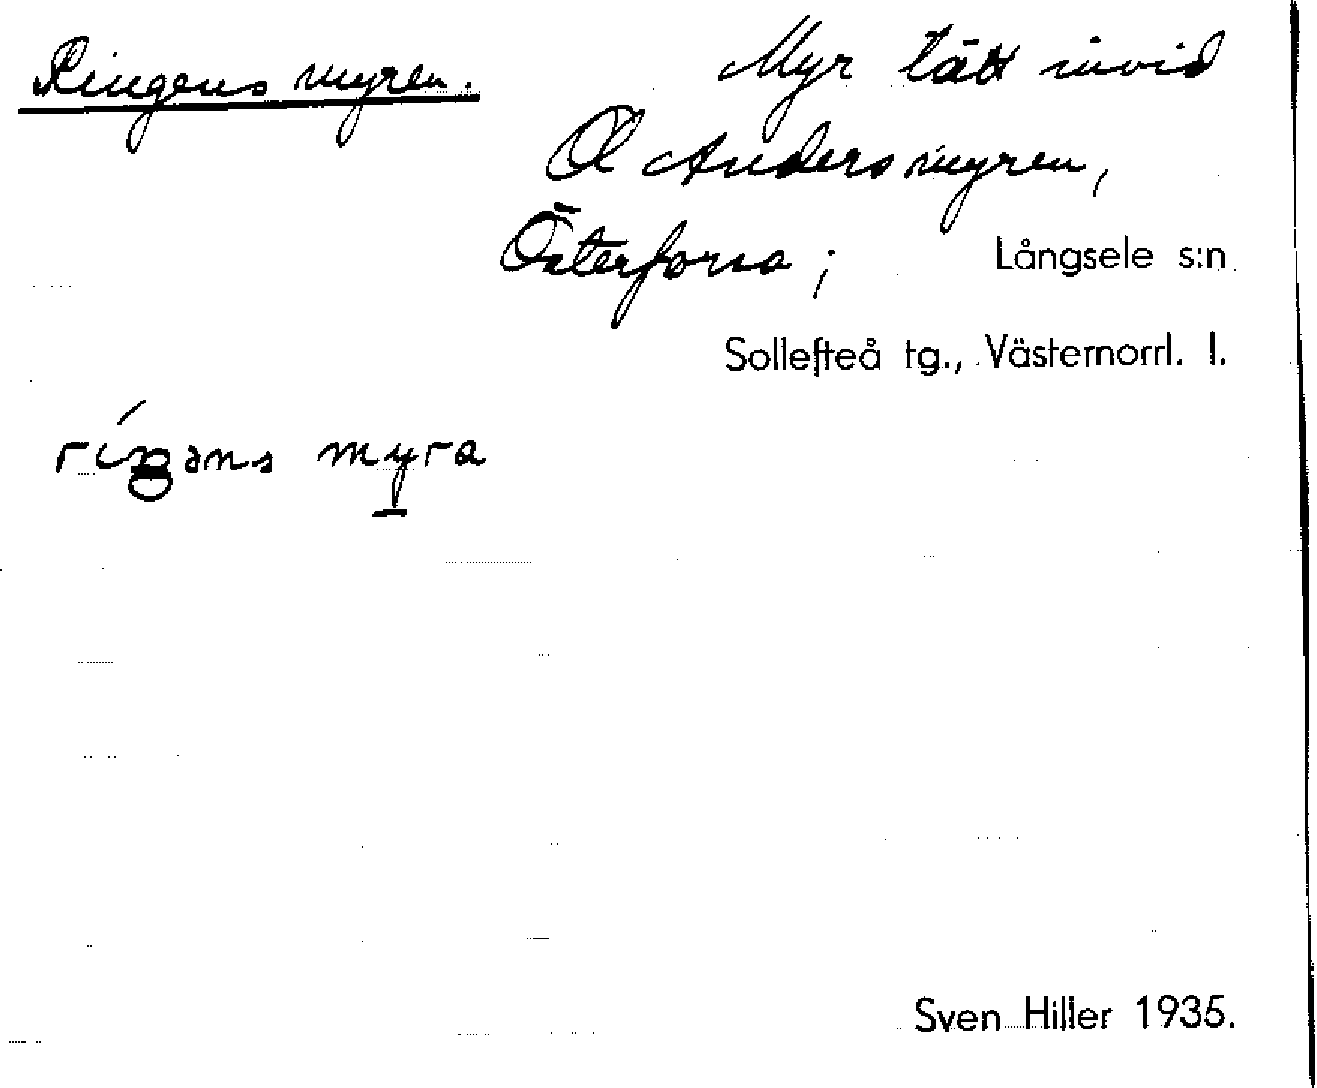 Ringens myren. Myr tätt invid
Ol Anders myren,
Österforsa; Långsele s:n
Sollefteå tg., Västernorrl. l.
myra
Sven Hiller 1935.